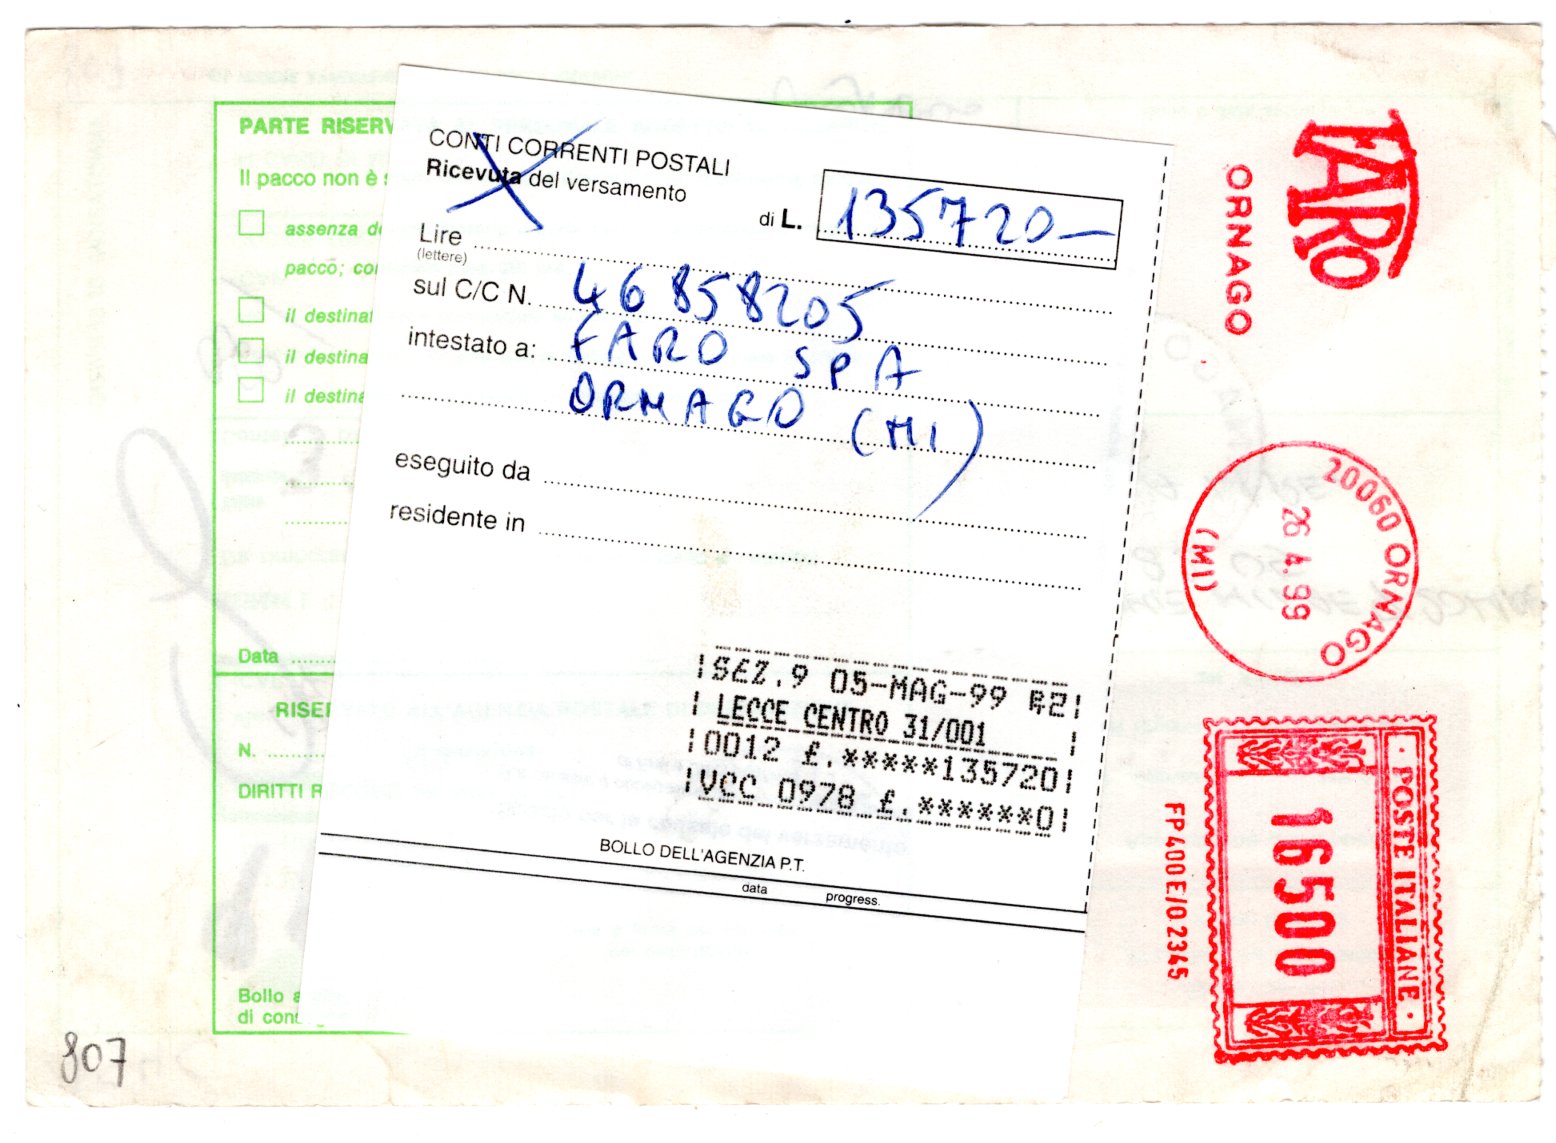 PARTE RISERV
Il pacco non è s
assenza de
pacco; con
il destinat
il destina
il destina
Data
RISE
N.
DIRITTI R
Bollo a
di con
807
CONTI CORRENTI POSTALI
Ricevuta del versamento
di L. 135720—
Lire
(lettere)
sul C/C N. 46858205
intestato a: FARO SPA
ORNAGO (MI)
eseguito da
residente in
SEZ.9 05-MAG-99 R2
LECCE CENTRO 31/001
0012 £.*****135720
VCC 0978 £.******0
BOLLO DELL'AGENZIA P.T.
data
progress.
FARO
ORNAGO
20060 ORNAGO
26.4.99
(MI)
POSTE ITALIANE
16500
FP400E/02345